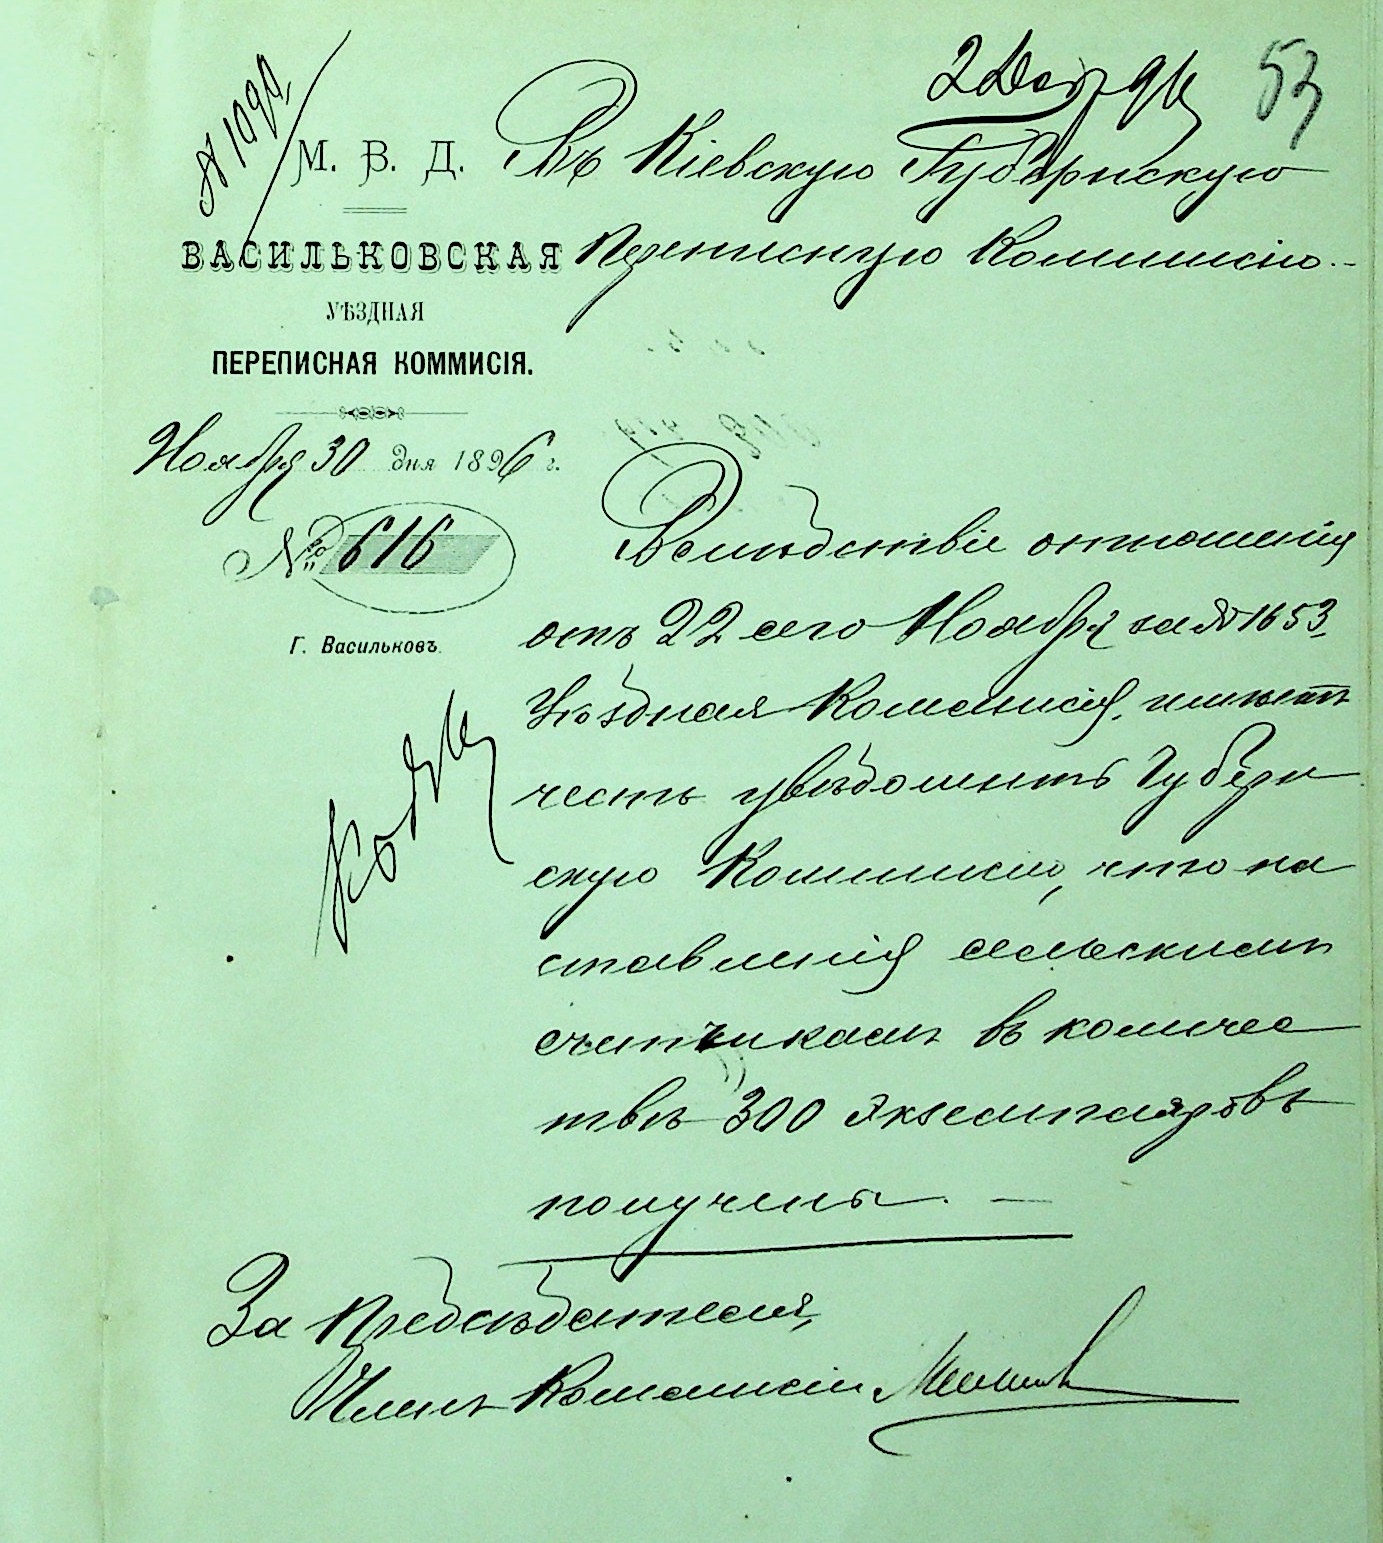 2 Дек 96
53
№ 1090
М. В. Д.
ВАСИЛЬКОВСКАЯ
УѢЗДНАЯ
ПЕРЕПИСНАЯ КОММИСІЯ.
Ноября 30 дня 1896 г.
№ 616
Г. Васильковъ.
Въ Кіевскую Губернскую
Переписную Коммисію.
Вслѣдствіе отношенія
отъ 22 сего Ноября за № 1653,
Уѣздная Коммисія, имѣетъ
честь увѣдомить Губерн
скую Коммисію, что на
ставленія сельскимъ
счетчикамъ въ количес
твѣ 300 экземпляровъ
получены. —
Къ дѣлу
За Предсѣдателя,
Членъ Коммисіи